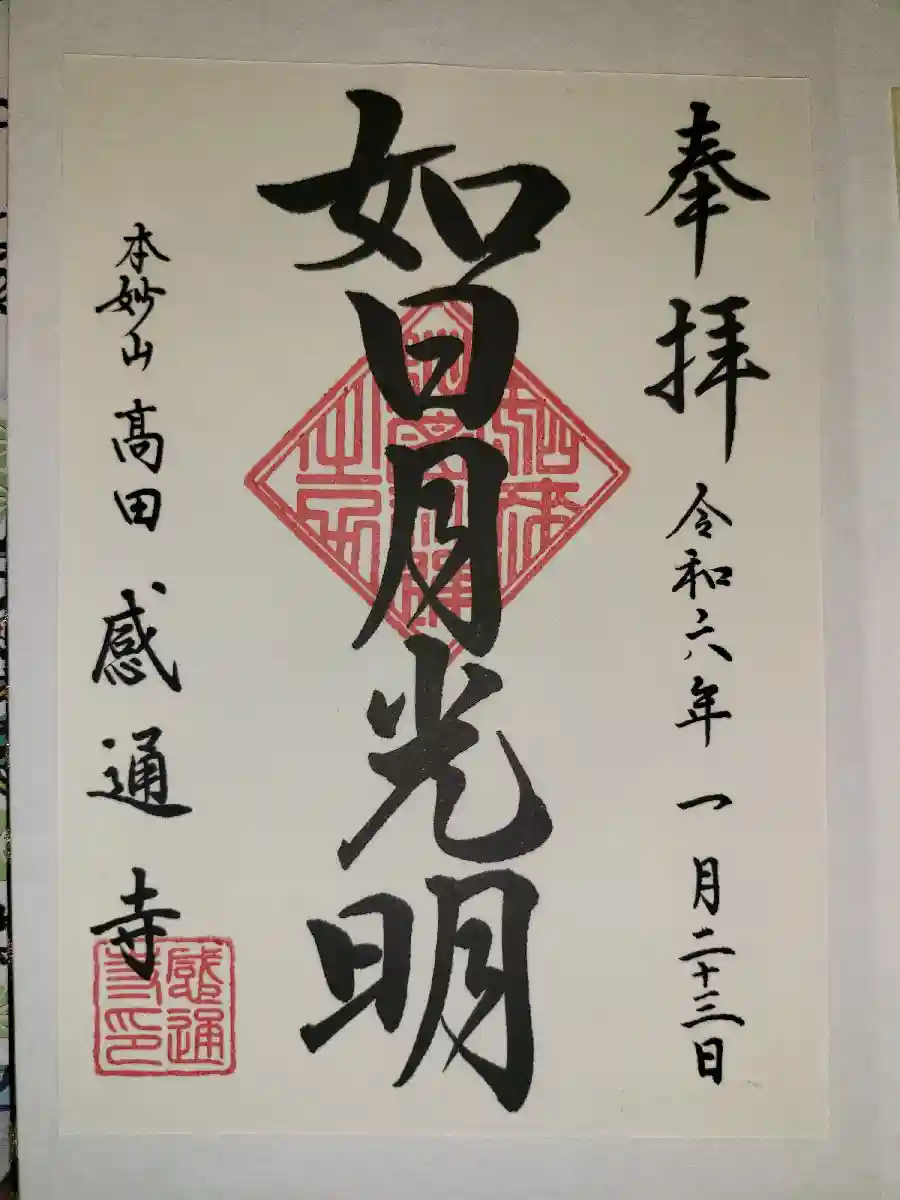 奉拝 令和六年 一月二十三日
如日月光明
本妙山 高田 感通寺
感通
寺印